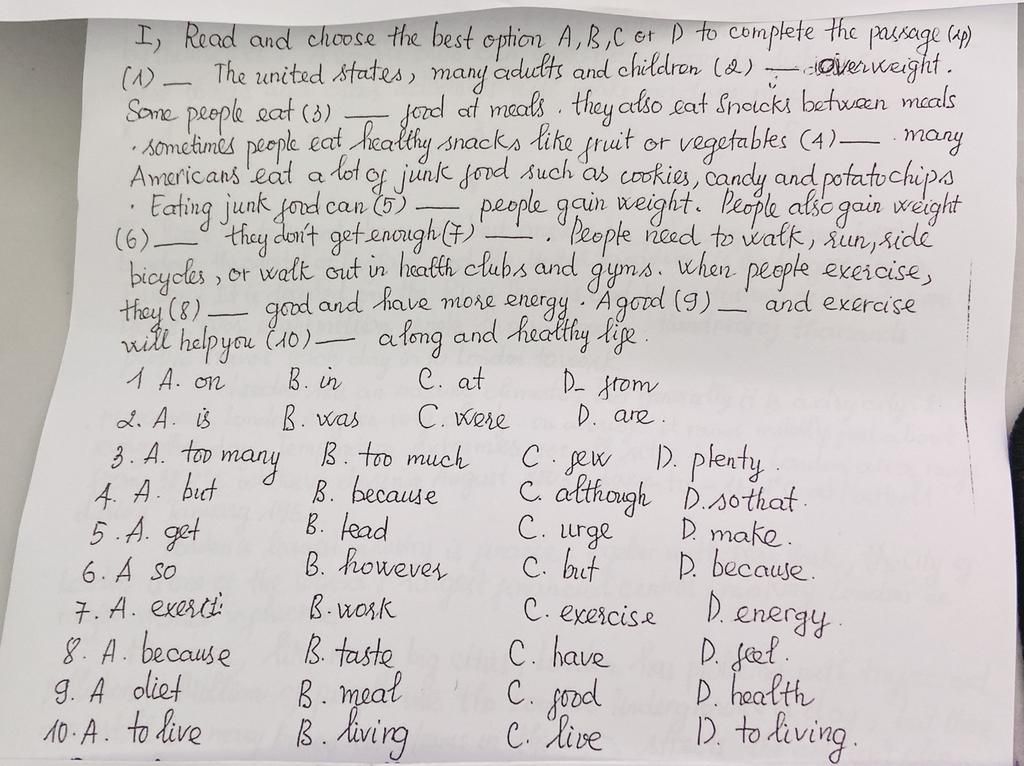 I, Read and choose the best option A, B, C or D to complete the passage (2p)
(1) __ The united states, many adults and children (2) __ overweight.
Some people eat (3) __ food at meals. they also eat snacks between meals
. sometimes people eat healthy snacks like fruit or vegetables (4) __ many
Americans eat a lot of junk food such as cookies, candy and potato chips
. Eating junk food can (5) __ people gain weight. People also gain weight
(6) __ they don't get enough (7) __. People need to walk, run, ride
bicycles, or walk out in health clubs and gyms. when people exercise,
they (8) __ good and have more energy. A good (9) __ and exercise
will help you (10) __ along and healthy life.
1 A. on B. in C. at D- from
2. A. is B. was C. were D. are.
3. A. too many B. too much C. few D. plenty.
4. A. but B. because C. although D. so that.
5. A. get B. lead C. urge D. make.
6. A so B. however C. but D. because.
7. A. B. work C. exercise D. energy.
8. A. because B. taste C. have D. feel.
9. A diet B. meal C. food D. health
10. A. to live B. living C. live D. to living.